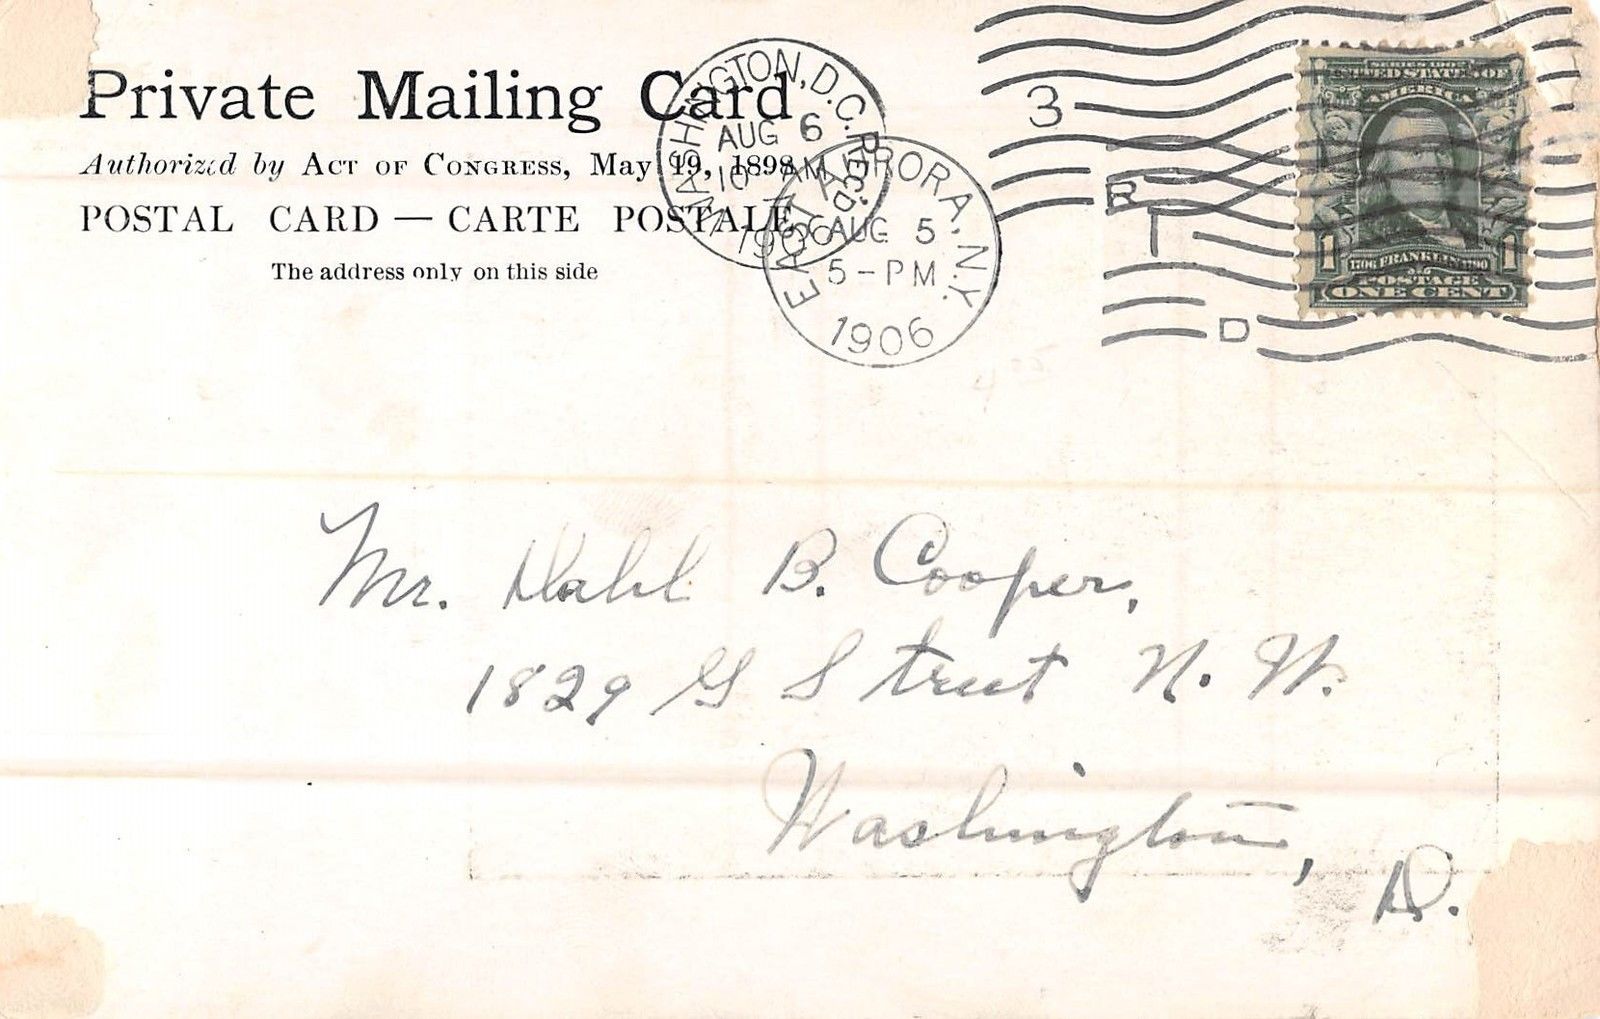 Private Mailing Card
Authorized by ACT OF CONGRESS, May 19, 1898
POSTAL CARD — CARTE POSTALE
The address only on this side
WASHINGTON, D.C. REC'D.
AUG 6
10-AM
1906
EAST AURORA, N.Y.
AUG 5
5-PM
1906
3
R
T
D
SERIES 1902
UNITED STATES OF
AMERICA
1 1
1706 FRANKLIN 1790
POSTAGE
ONE CENT
Mr. Dahl B. Cooper,
1829 G Street N. W.
Washington,
D.